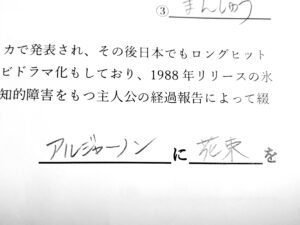 ③ まんしゅう
カで発表され、その後日本でもロングヒット
ビドラマ化もしており、1988年リリースの氷
知的障害をもつ主人公の経過報告によって綴
アルジャーノンに花束を